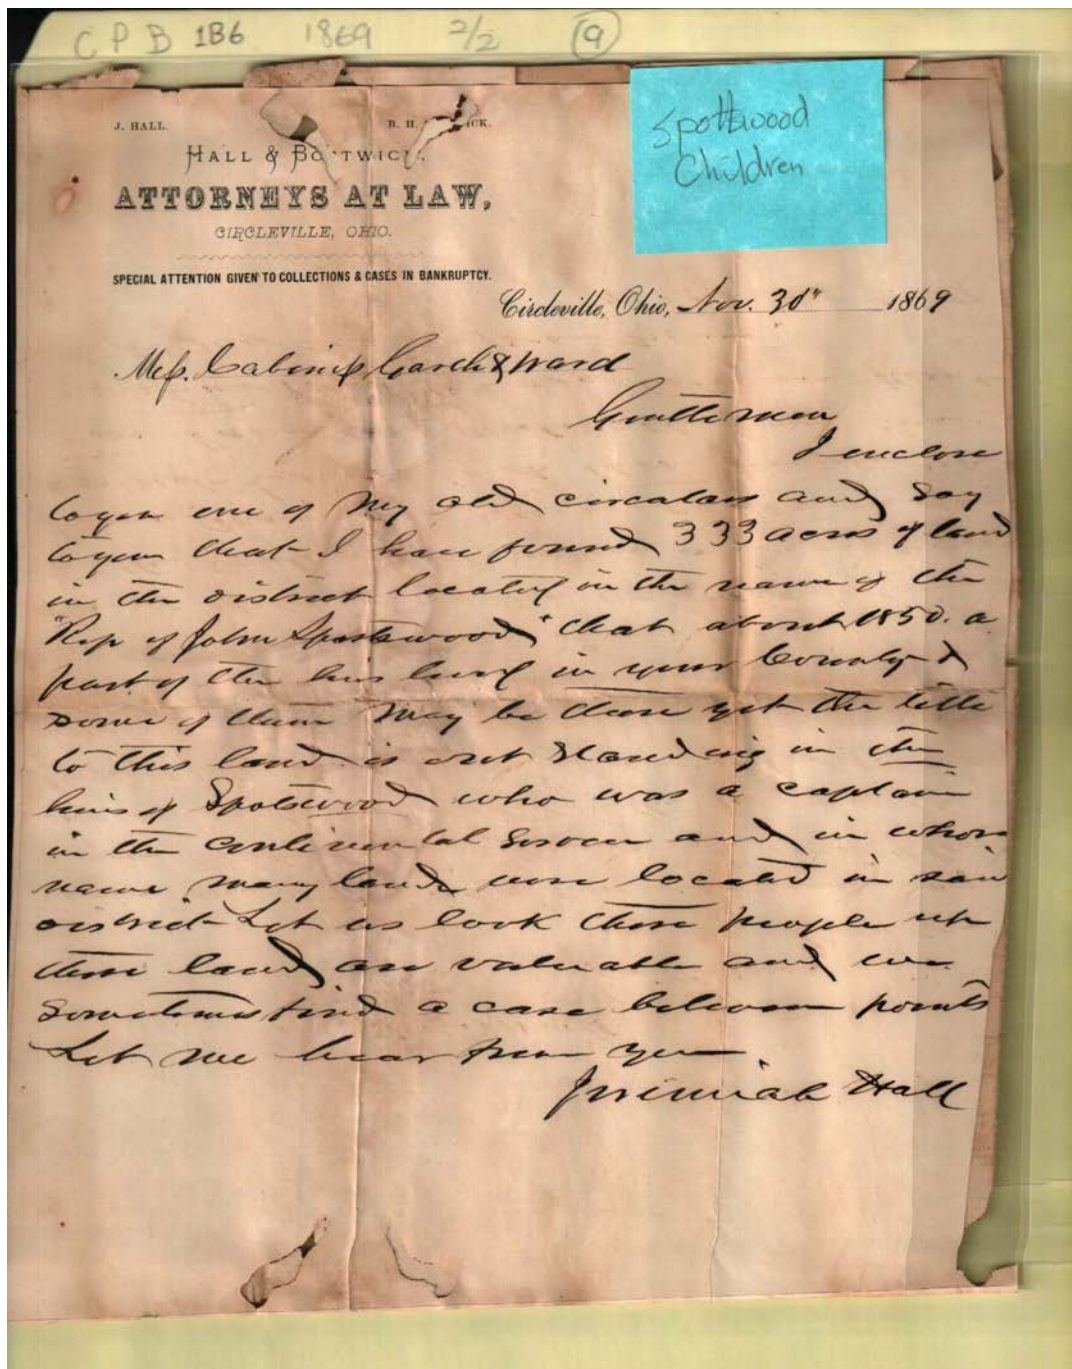 CPB 1B6 1869 2/2 9
Spottswood
Children
J. HALL. B. H.
HALL & BOSTWICK,
ATTORNEYS AT LAW,
CIRCLEVILLE, OHIO.
SPECIAL ATTENTION GIVEN TO COLLECTIONS & CASES IN BANKRUPTCY.
Circleville, Ohio, Nov. 30th 1869
Gentlemen
I enclose
to you one of my old circulars and say
to you that I have found 333 acres of land
in the district located in the name of the
"Rep of John Spotswood" that about 1850. a
part of the heirs lived in your County &
some of them may be there yet the title
to this land is out standing in the
heirs of Spotswood who was a captain
in the continental and in whose
name many lands were located in said
district Let us look these people up
these land are valuable and we
sometimes find a case between points
Let me hear from you
Jeremiah Hall